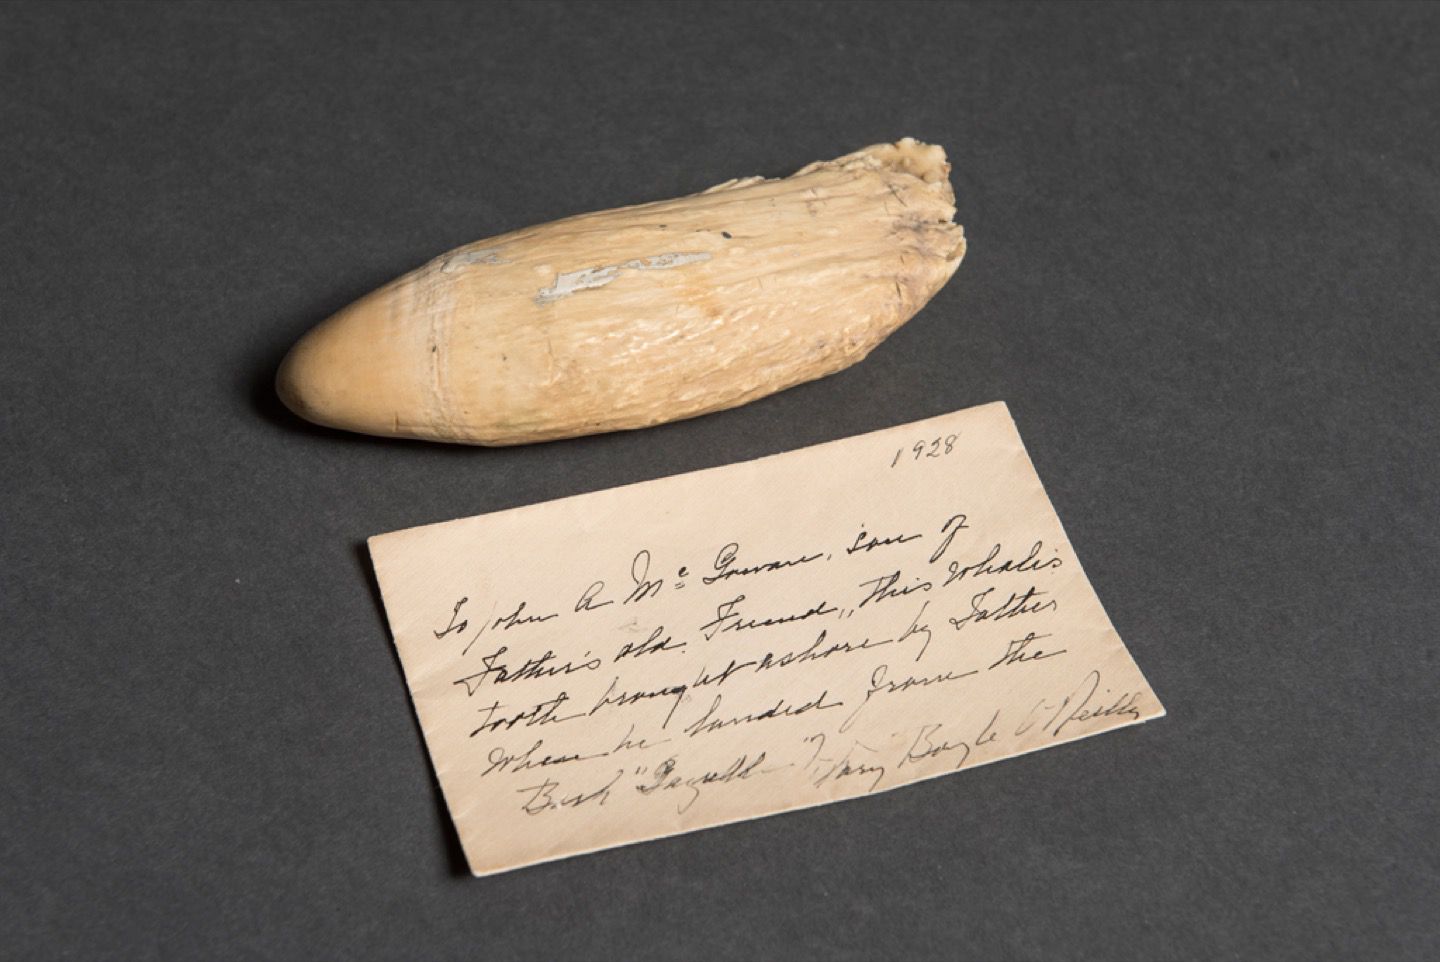 1928
To John A McGowan, son of
Father's old Friend,, This Whale's
tooth brought ashore by Father
when he landed from the
Bark "Gazelle" Mary Boyle O'Reilly